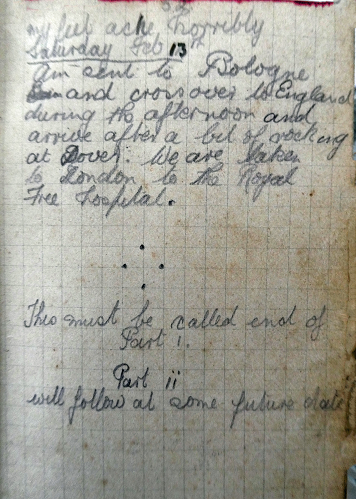 my feet ache horribly
Saturday Feb 13th
Am sent to Bologne
and cross over to England
during the afternoon and
arrive after a bit of rocking
at Dover. We are taken
to London to the Royal
Free Hospital.
This must be called end of
Part I.
Part ii
will follow at some future date